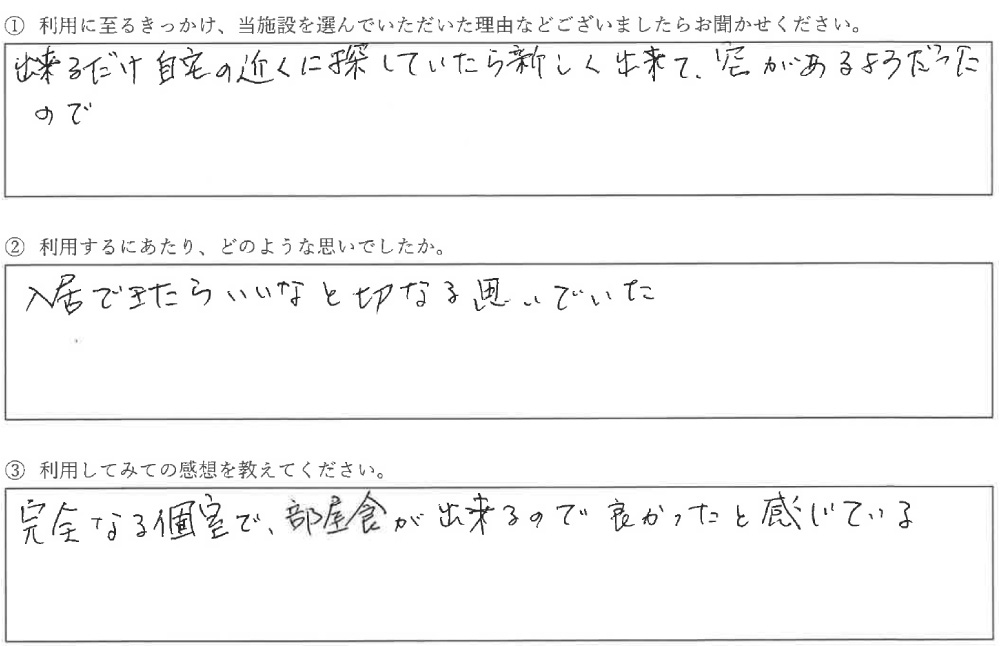 ① 利用に至るきっかけ、当施設を選んでいただいた理由などございましたらお聞かせください。
出来るだけ自宅の近くに探していたら新しく出来て、空があるようだった
ので
② 利用するにあたり、どのような思いでしたか。
入居できたらいいなと切なる思いでいた
③ 利用してみての感想を教えてください。
完全なる個室で、部屋食が出来るので良かったと感じている